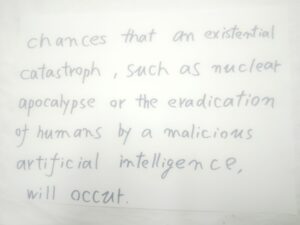 chances that an existential
catastroph, such as nuclear
apocalypse or the eradication
of humans by a malicious
artificial intelligence,
will occur.